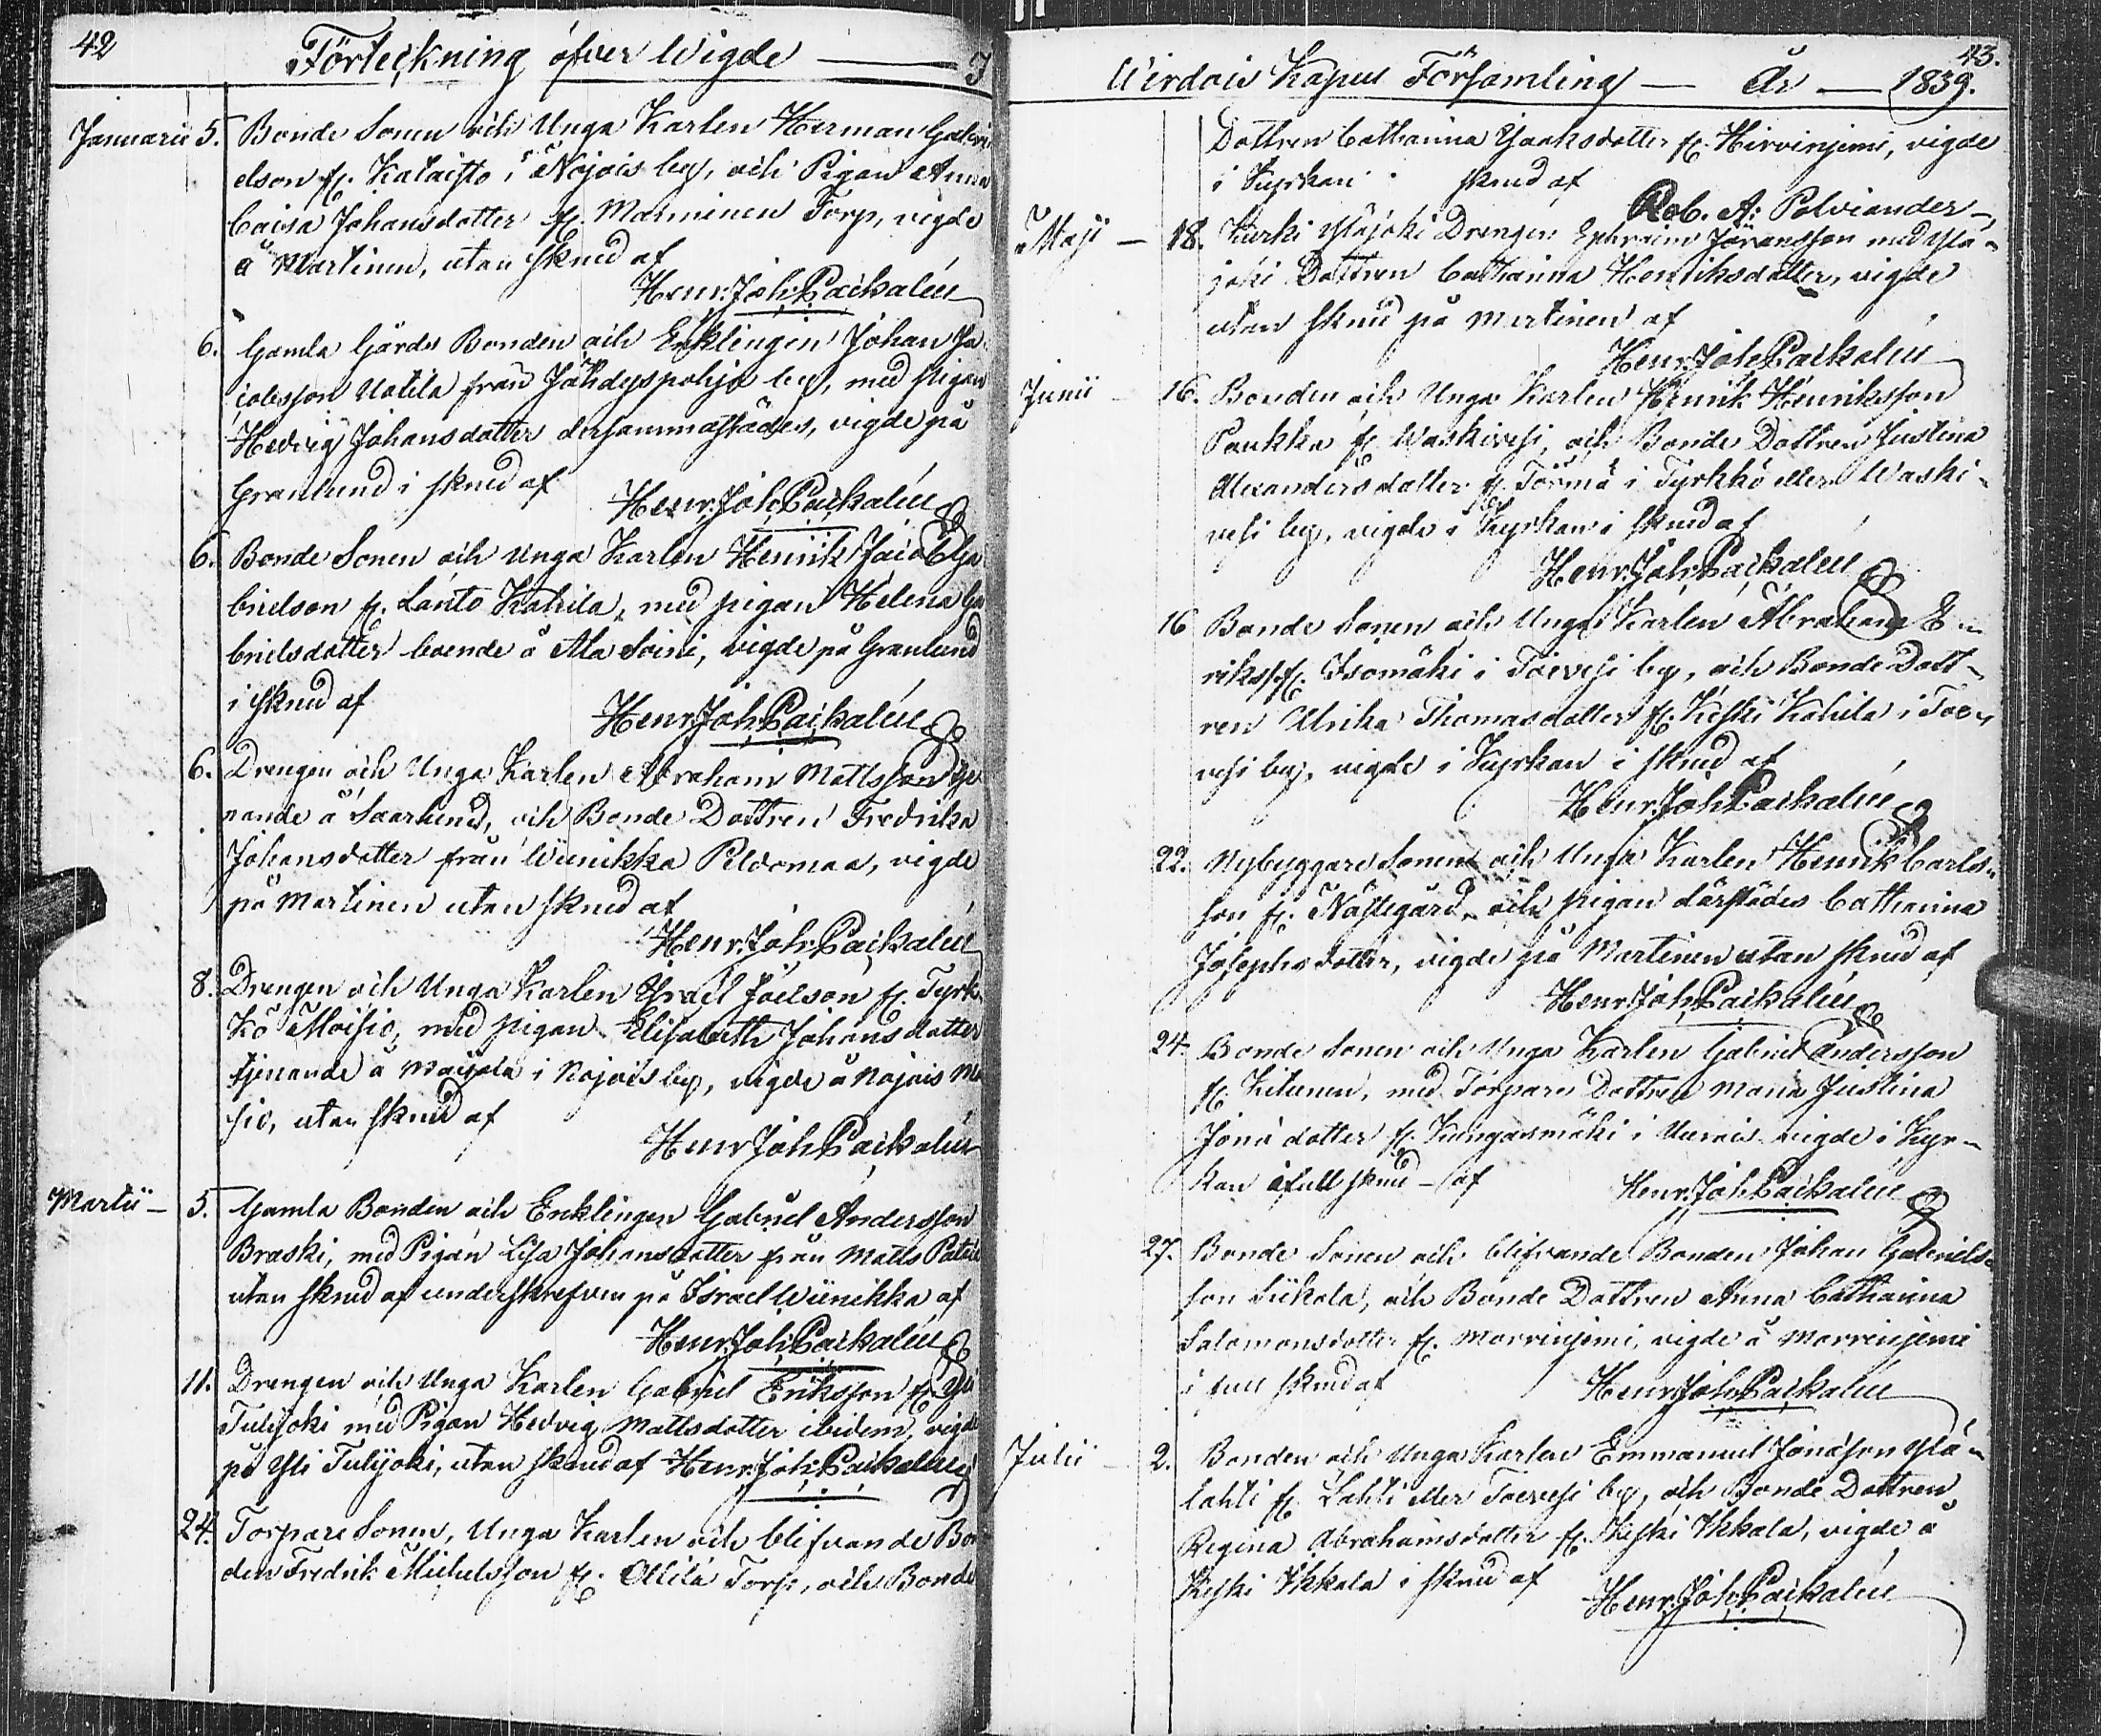 42
Förteckning öfver Wigde —
Januarii 5. Bonde Sonen och Unga Karlen Herman Gabri
elson fr. Kataisto i Nojois by, och Pigan Anna
Caisa Johansdotter fr. Manninen Torp, vigde
å Martinen, utan skrud af
Henr. Joh. Packalén
6. Gamla Gårds Bonden och Enklingen Johan Ja
cobsson Uotila från Jähdyspohja by, med pigan
Hedvig Johansdotter dersammastädes, vigde på
Granlund i skrud af
Henr. Joh. Packalén
6. Bonde Sonen och Unga Karlen Henrik Jacob Ga
brielson fr. Länto Kahila, med pigan Helena Ga
brielsdotter boende å Ala Soini, vigde på Granlund
i skrud af
Henr. Joh. Packalén
6. Drengen och Unga Karlen Abraham Mattsson tje
nande å Saarlund, och Bonde Dottren Fredrika
Johansdotter från Wiinikka Peldomaa, vigde
på Martinen utan skrud af
Henr. Joh. Packalén
8. Drengen och Unga Karlen Israel Joelson fr. Tyrk
kö Moisio, med pigan Elisabeth Johansdotter
tjenande å Maijala i Nojois by, vigde å Nojois Mo
sio, utan skrud af
Henr. Joh. Packalén
Martii — 5. Gamla Bonden och Enklingen Gabriel Andersson
Braski, med Pigan Lisa Johansdotter från Matts
utan skrud af underskrefven på Israel Wiinikka af
Henr. Joh. Packalén
11. Drengen och Unga Karlen Gabriel Eriksson fr. Yli
Tulijoki med Pigan Hedvig Mattsdotter ibidem, vigde
på Yli Tulijoki, utan skrud af Henr. Joh. Packalén
24. Torpare Sonen, Unga Karlen och blifvande Bon
den Fredrik Michelsson fr. Ollila Torp, och Bonde
43.
Wirdois Kapell Församling — År — 1839.
Dottren Catharina Jaaksdotter fr. Hirvinjemi, vigde
i Kyrkan skrud af
Rob. A: Polviander
Maji — 18. Kurki Yläjoki Drengen Ephraim Göransson med Ylä-
joki Dottren Catharina Henriksdotter, vigde
utan skrud på Martinen af
Henr. Joh. Packalén
Junii — 16. Bonden och Unga Karlen Henrik Henriksson
Paukka fr. Waskivesi, och Bonde Dottren Justina
Alexandersdotter fr. Törmä i Tyrkkö eller Waski-
vesi by, vigde i Kyrkan i skrud af
Henr. Joh. Packalén
16 Bonde Sonen och Unga Karlen Abraham E-
rikss. fr. Isomäki i Toivesi by, och Bonde Dott-
ren Ulrika Thomasdotter fr. Keski Kahila i Toi-
vesi by, vigde i Kyrkan i skrud af
Henr. Joh. Packalén
22. Nybyggare Sonen och Unga Karlen Henrik Carls-
son fr. Nästegård, och pigan därstädes Catharina
Josephsdotter, vigde på Martinen utan skrud af
Henr. Joh. Packalén
24. Bonde Sonen och Unga Karlen Gabriel Andersson
fr. Kitunen, med Torpare Dottren Maria Justina
Jonædotter fr. Kungasmäki i vigde i Kyr-
kan i full skrud — af Henr. Joh. Packalén
27. Bonde Sonen och blifvande Bonden Johan Gabriels-
son Liikala, och Bonde Dottren Anna Catharina
Salomonsdotter fr. Marrinjemi, vigde å Marrinjemi
i full skrud af
Henr. Joh. Packalén
Julii — 2. Bonden och Unga Karlen Emmanuel Jonæson Ylä-
lahti fr. Lahti eller Toivesi by, och Bonde Dottren
Regina Abrahamsdotter fr. Keski Ikkala, vigde å
Keski Ikkala i skrud af
Henr. Joh. Packalén